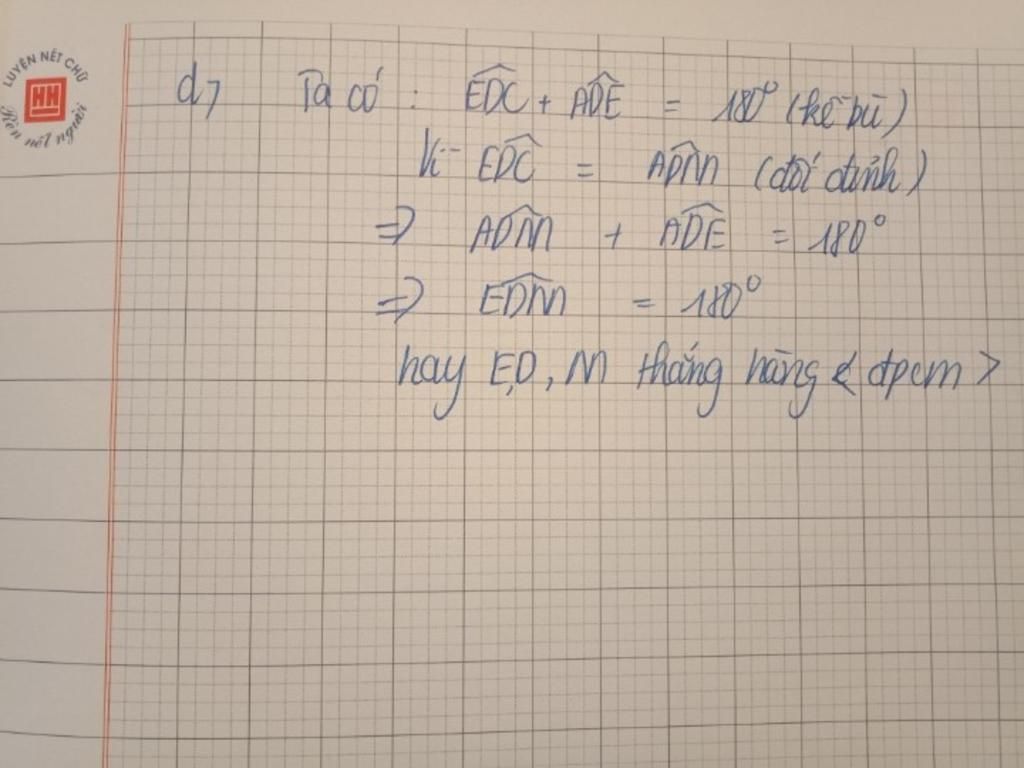 LUYỆN NÉT CHỮ
HH
Rèn nết người
d, Ta có : EDC + ADE = 180° (kề bù)
Vì EDC = ADM (đối đỉnh)
=> ADM + ADE = 180°
=> EDM = 180°
hay E,D, M thẳng hàng < đpcm >